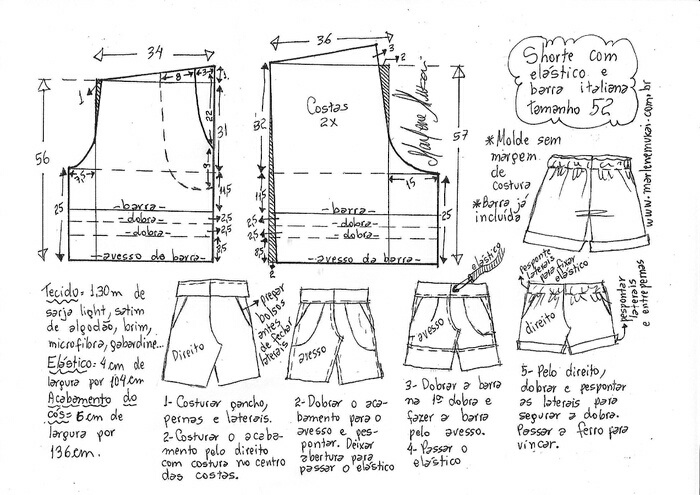 34
8
3
1
1
22
31
9
56
3,5
11,5
25
-barra-
-dobra-
-dobra-
-avesso da barra-
2,5
2,5
3,5
36
3
2
Costas
2X
Marlene Mukai
32
57
15
11,5
25
-barra-
-dobra-
-dobra-
-avesso da barra-
2,5
2,5
3,5
2
Shorte com
elástico e
barra italiana
tamanho 52
www.marlenemukai.com.br
*Molde sem
margem
de
costura
*Barra já
incluída
Tecido: 1,30m de
sarja light, satim
de algodão, brim,
microfibra, gabardine...
Elástico: 4cm de
largura por 104cm
Acabamento do
cós= 6cm de
largura por
136cm.
Direito
Pregar
bolsos
antes
de fechar
laterais
avesso
elástico
avesso
pesponte
laterais
para fixar
elástico
direito
pespontar
laterais
e entrepernas
1- Costurar gancho,
pernas e laterais.
2- Costurar o acaba-
mento pelo direito
com costura no centro
das costas.
2- Dobrar o aca-
bamento para o
avesso e pes-
pontar. Deixar
abertura para
passar o elástico
3- Dobrar a barra
na 1ª dobra e
fazer a barra
pelo avesso.
4- Passar o
elástico
5- Pelo direito,
dobrar e pespontar
as laterais para
segurar a dobra.
Passar a ferro para
vincar.